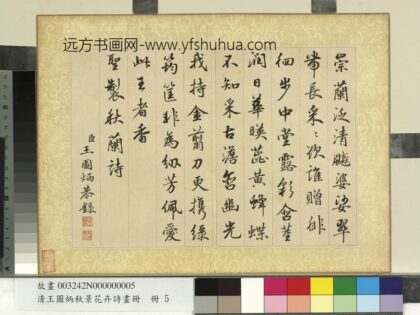 远方书画网-www.yfshuhua.com
崇蘭泛清飈婆娑翠
帶長采采欲誰贈徘
徊步中堂露彩含莖
潤日華暎蕊黄蜂蝶
不知采古澹含幽光
我持金剪刀更携綠
筠筐非為紉芳佩愛
此王者香
聖製秋蘭詩
臣王圖炳恭錄
故畫 003242N000000005
清王圖炳秋景花卉詩畫冊 冊 5